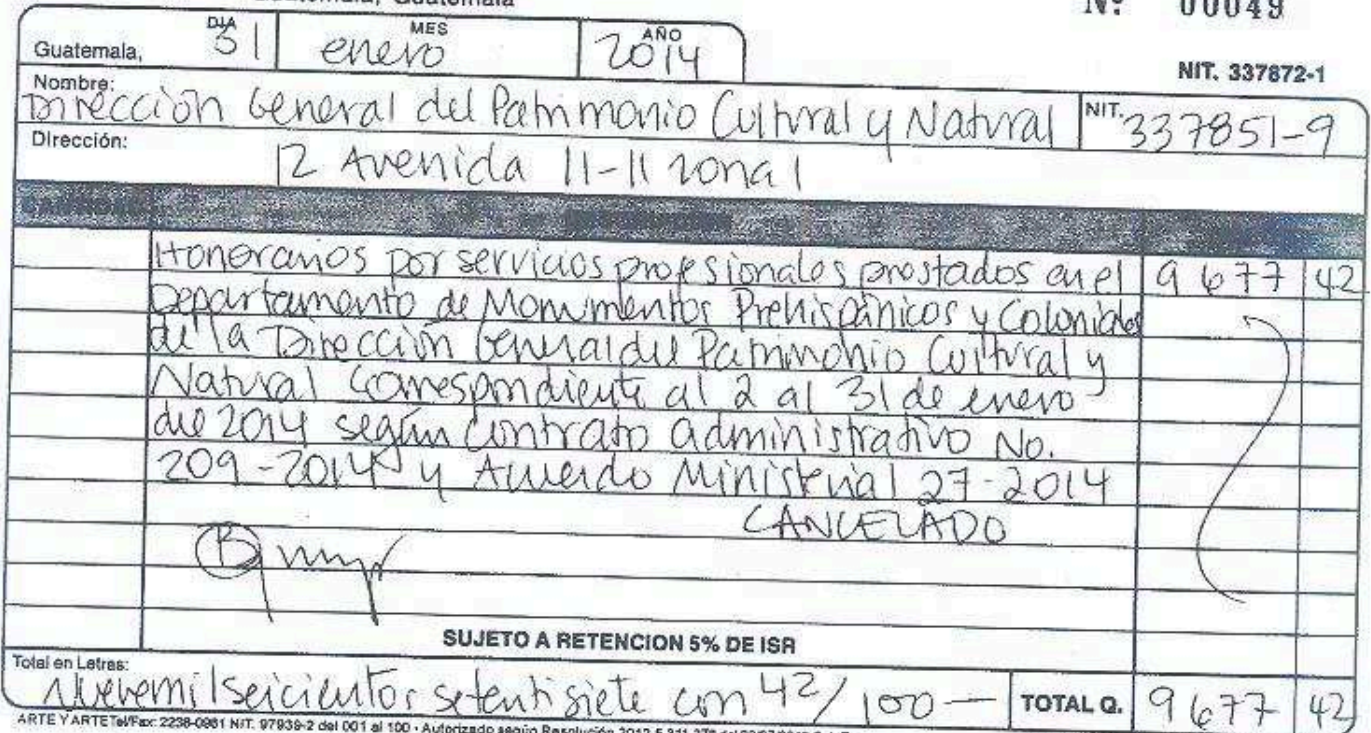 Guatemala, Guatemala
Nº 00049
DIA MES AÑO
Guatemala, 31 enero 2014
NIT. 337872-1
Nombre: Dirección General del Patrimonio Cultural y Natural NIT. 337851-9
Dirección: 12 Avenida 11-11 zona 1
Honorarios por servicios profesionales prestados en el 9677 42
Departamento de Monumentos Prehispánicos y Coloniales
de la Dirección General del Patrimonio Cultural y
Natural correspondiente al 2 al 31 de enero
del 2014 según contrato administrativo No.
209-2014 y Acuerdo Ministerial 27-2014
CANCELADO
SUJETO A RETENCION 5% DE ISR
Total en Letras: Nuevemil seicientos setentisiete con 42/100 — TOTAL Q. 9677 42
ARTE Y ARTE Tel/Fax: 2238-0961 NIT. 97939-2 del 001 al 100 • Autorizado según Resolución